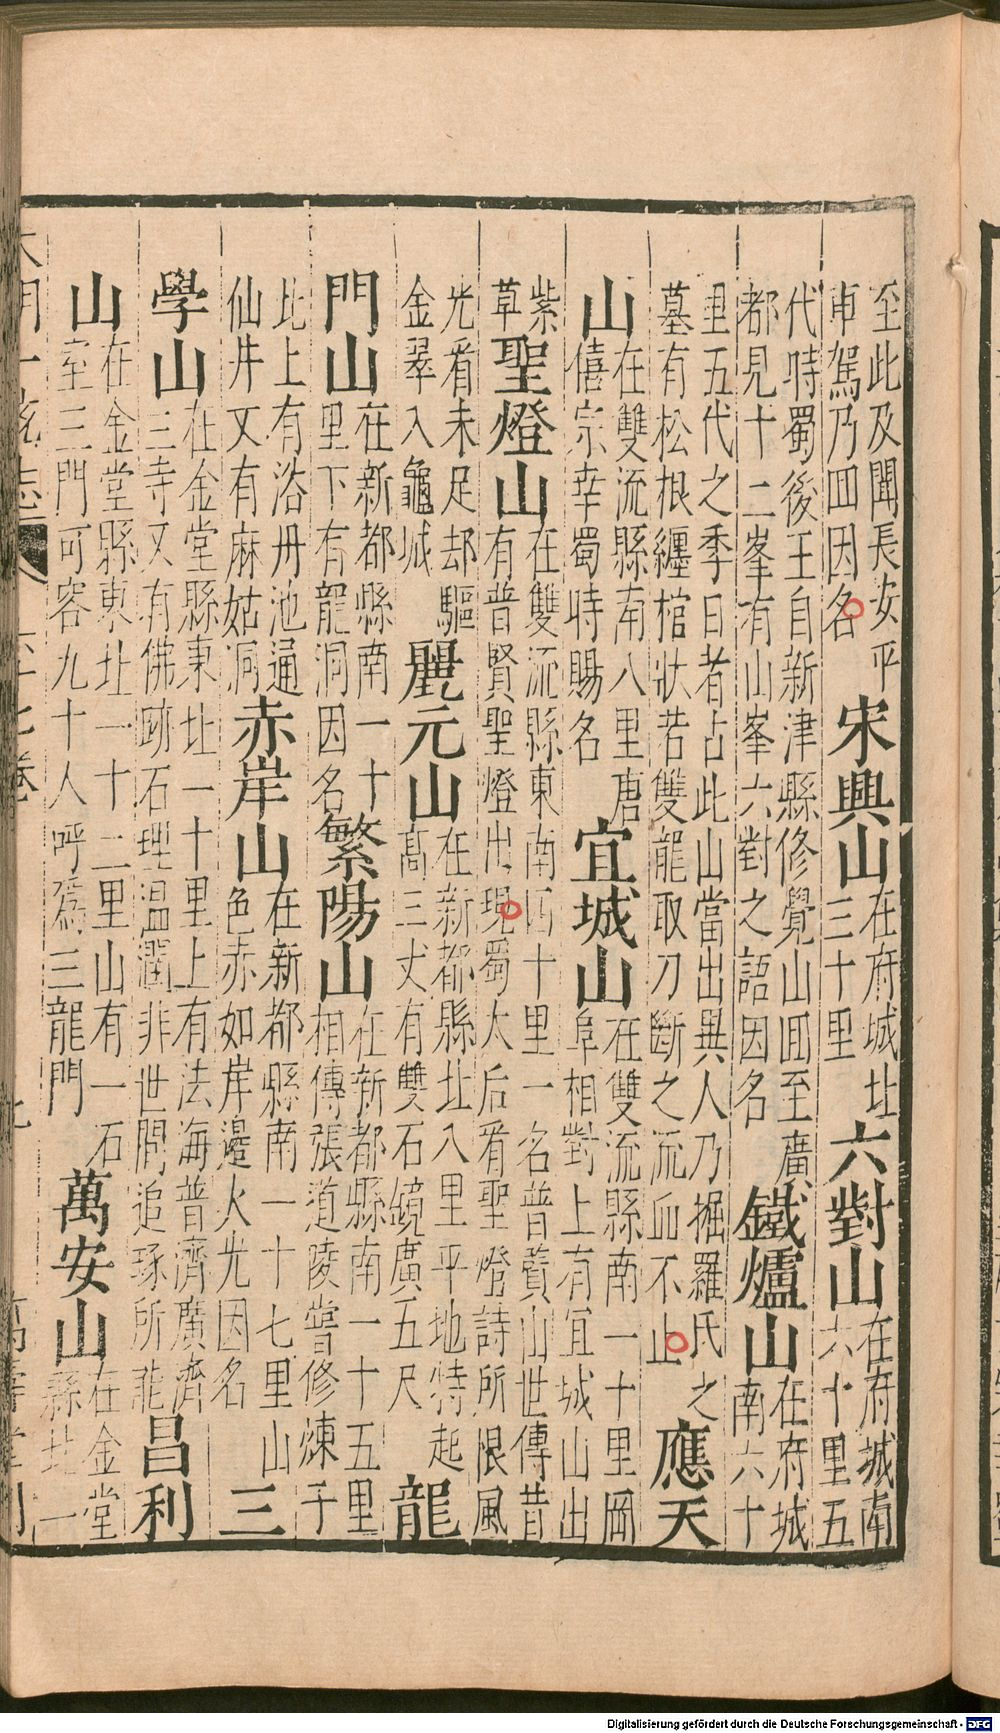 至此及聞長安平
車駕乃囬因名
宋興山
在府城北
三十里
六對山
在府城南
六十里五
代時蜀後王自新津縣修覺山囬至廣
都見十二峯有山峯六對之語因名
鐵爐山
在府城
南六十
里五代之季日者占此山當出異人乃掘羅氏之
墓有松根纏棺狀若雙龍取刀斷之流血不止
應天
山
在雙流縣南八里唐
僖宗幸蜀時賜名
宜城山
在雙流縣南一十里岡
阜相對上有宜城山出
紫
草
聖燈山
在雙流縣東南四十里一名普賁山世傳昔
有普賢聖燈出現蜀太后看聖燈詩所限風
光看未足却驅
金翠入龜城
麗元山
在新都縣北八里平地特起
高三丈有雙石鏡廣五尺
龍
門山
在新都縣南一十
里下有龍洞因名
繁陽山
在新都縣南一十五里
相傳張道陵嘗修煉于
此上有浴丹池通
仙井又有麻姑洞
赤岸山
在新都縣南一十七里山
色赤如岸邊火光因名
三
學山
在金堂縣東北一十里上有法海普濟廣濟
三寺又有佛跡石理温潤非世間追琢所能
昌利
山
在金堂縣東北一十二里山有一石
室三門可容九十人呼爲三龍門
萬安山
在金堂
縣北一
大明一統志
卷